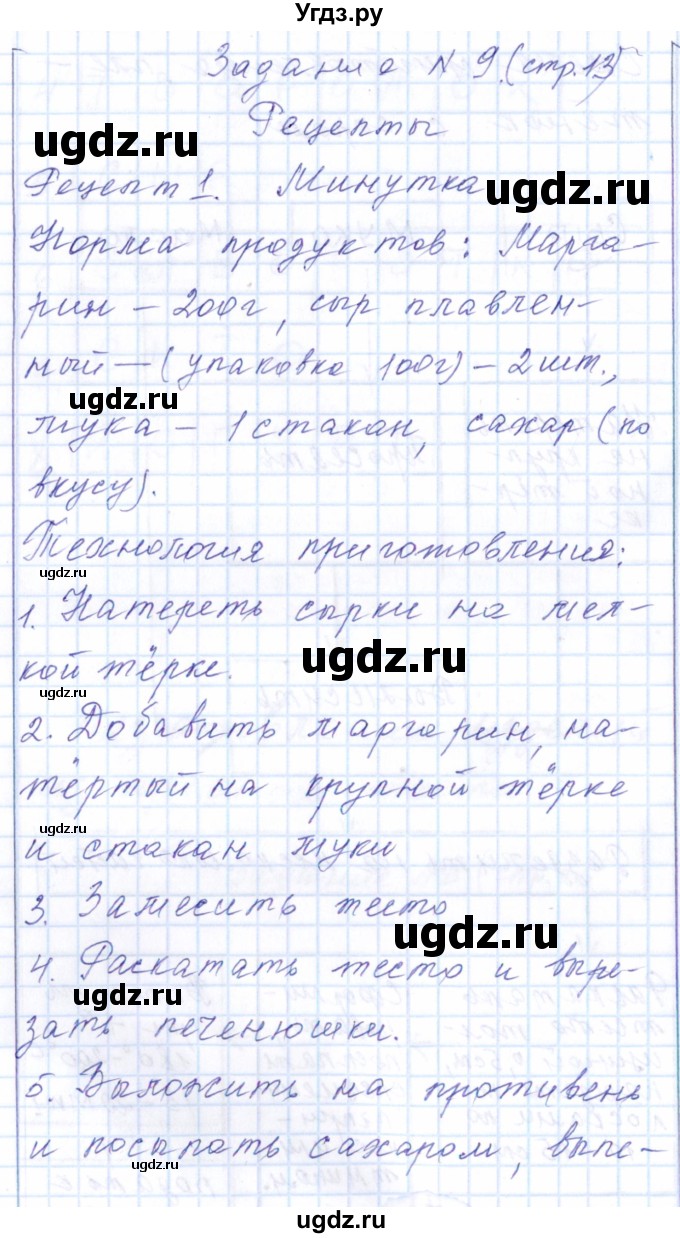 Угдз.ру
Задание № 9.(стр.13)
Рецепты
ugdz.ru
Рецепт 1. Минутка
ugdz.ru
Норма продуктов: Марга-
рин - 200г, сыр плавлен-
ный - (упаковка 100г) - 2 шт.,
ugdz.ru
мука - 1 стакан, сахар (по
вкусу).
Технология приготовления:
ugdz.ru
1. Натереть сырки на мел-
ugdz.ru
кой тёрке.
ugdz.ru
2. Добавить маргарин, на-
тёртый на крупной тёрке
ugdz.ru
и стакан муки
3. Замесить тесто
ugdz.ru
4. Раскатать тесто и выре-
ugdz.ru
зать печенюшки.
5. Выложить на противень
ugdz.ru
и посыпать сахаром, выпе-
ugdz.ru